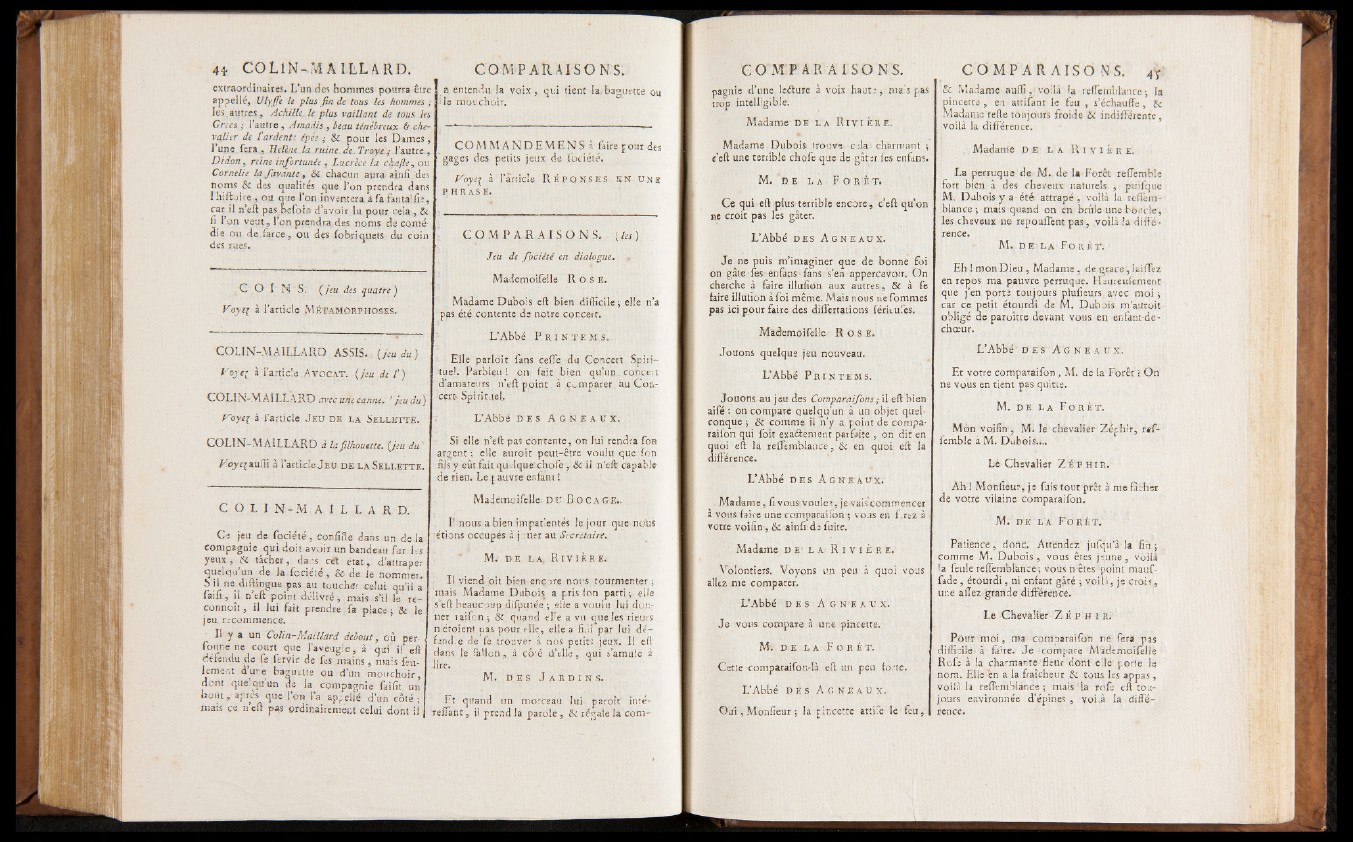 44 COLIN-MAILLARD.
extraordinaires. L'un des hommes pourra être
appellé, Ulysse le plus fin de tous les hommes ;
les autres, Achille le plus vaillant de tous les
Grecs ; l'autre, Amadis, beau ténébreux & che-
valier de l'ardente épée ; & pour les Dames,
l'une sera, Helène la ruine de Troye ; l'autre,
Didon, reine infortunée, Lucrèce la chaste, ou
Cornelie la savante, & chacun aura ainsi des
noms & des qualités que l'on prendra dans
l'histoire, ou que l'on inventera à sa fantaisie,
car il n'est pas besoin d'avoir lu pour cela, &
si l'on veut, l'on prendra des noms de comé
die ou de farce, ou des sobriquets du coin
des rues.
COINS. (jeu des quatre)
Voyez à l'article MÉTAMORPHOSES.
COLIN-MAILLARD ASSIS. (jeu du)
Voyez à l'article AVOCAT. (jeu de l')
COLIN-MAILLARD avec une canne. (jeu du)
Voyez à l'article JEU DE LA SELLETTE.
COLIN-MAILLARD à la silhouette. (jeu du
Voyez aussi à l'article JEU DE LA SELLETTE.
COLIN-MAILLARD.
Ce jeu de société, consiste dans un de la
compagnie qui doit avoir un bandeau sur les
yeux, & tâcher, dans cet état, d'attraper
quelqu'un de la société, & de le nommer.
S'il ne distingue pas au toucher celui qu'il a
saisi, il n'est point délivré, mais s'il le re-
connoît, il lui fait prendre sa place ; & le
jeu recommence.
Il y a un Colin-Maillard debout, où per-
sonne ne court que l'aveugle, à qui il est
défendu de se servir de ses mains, mais seu-
lement d'une baguette ou d'un mouchoir,
dont quelqu'un de la compagnie saisit un
bout, après que l'on l'a appellé d'un côté ;
mais ce n'est pas ordinairement celui dont il
COMPARAISONS.
a entendu la voix, qui tient la baguette ou
le mouchoir.
COMMANDEMENS à faire pour des
gages des petits jeux de société.
Voyez à l'article RÉPONSES EN UNE
PHRASE.
COMPARAISONS. (les)
Jeu de société en dialogue.
Mademoiselle ROSE.
Madame Dubois est bien difficile ; elle n'a
pas été contente de notre concert.
L'Abbé PRINTEMS.
Elle parloit sans cesse du Concert Spiri-
tuel. Parbleu ! on sait bien qu'un concert
d'amateurs n'est point à comparer au Con-
cert Spirituel.
L'Abbé DES AGNEAUX.
Si elle n'est pas contente, on lui rendra son
argent ; elle auroit peut-être voulu que son
fils y eût fait quelque chose, & il n'est capable
de rien. Le pauvre enfant !
Mademoiselle DU BOCAGE.
Il nous a bien impatientés le jour que nous
étions occupés à jouer au Secrétaire.
M. DE LA RIVIÈRE.
Il viendroit bien encore nous tourmenter ;
mais Madame Dubois a pris son parti ; elle
s'est beaucoup disputée ; elle a voulu lui don-
ner raison ; & quand elle a vu que les rieurs
n'étoient pas pour elle, elle a fini par lui dé-
fendre de se trouver à nos petits jeux. Il est
dans le sallon, à côté d'elle, qui s'amuse à
lire.
M. DES JARDINS.
Et quand un morceau lui paroît inté-
ressant, il prend la parole, & régale la com-
COMPARAISONS.
pagnie d'une lecture à voix haute, mais pas
trop intelligible.
Madame DE LA RIVIÈRE.
Madame Dubois trouve cela charmant ;
c'est une terrible chose que de gâter ses enfans.
M. DE LA FORÊT.
Ce qui est plus terrible encore, c'est qu'on
ne croit pas les gâter.
L'Abbé DES AGNEAUX.
Je ne puis m'imaginer que de bonne foi
on gâte ses enfans sans s'en appercevoir. On
cherche à faire illusion aux autres, & à se
faire illusion à soi même. Mais nous ne sommes
pas ici pour faire des dissertations sérieuses.
Mademoiselle ROSE.
Jouons quelque jeu nouveau.
L'Abbé PRINTEMS.
Jouons au jeu des Comparaisons ; il est bien
aisé : on compare quelqu'un à un objet quel-
conque ; & comme il n'y a point de compa-
raison qui soit exactement parfaite, on dit en
quoi est la ressemblance, & en quoi est la
différence.
L'Abbé DES AGNEAUX.
Madame, si vous voulez, je vais commencer
à vous faire une comparaison ; vous en ferez à
votre voisin, & ainsi de suite.
Madame DE LA RIVIÈRE.
Volontiers. Voyons un peu à quoi vous
allez me comparer.
L'Abbé DES AGNEAUX.
Je vous compare à une pincette.
M. DE LA FORÊT.
Cette comparaison-là est un peu forte.
L'Abbé DES AGNEAUX.
Oui, Monsieur ; la pincette attise le feu,
COMPARAISONS. 45
& Madame aussi, voilà la ressemblance ; la
pincette, en attisant le feu, s'échauffe, &
Madame reste toujours froide & indifférente,
voilà la différence.
Madame DE LA RIVIÈRE.
La perruque de M. de la Forêt ressemble
fort bien à des cheveux naturels, puisque
M. Dubois y a été attrapé, voilà la ressem-
blance ; mais quand on en brûle une boucle,
les cheveux ne repoussent pas, voilà la diffé-
rence.
M. DE LA FORÊT.
Eh ! mon Dieu, Madame, de grace, laissez
en repos ma pauvre perruque. Heureusement
que j'en porte toujours plusieurs avec moi ;
car ce petit étourdi de M. Dubois m'auroit
obligé de paroître devant vous en enfant-de-
chœur.
L'Abbé DES AGNEAUX.
Et votre comparaison, M. de la Forêt ? On
ne vous en tient pas quitte.
M. DE LA FORÊT.
Mon voisin, M. le chevalier Zéphir, res-
semble à M. Dubois...
Le Chevalier ZÉPHIR.
Ah ! Monsieur, je suis tout prêt à me fâcher
de votre vilaine comparaison.
M. DE LA FORÊT.
Patience, donc. Attendez jusqu'à la fin ;
comme M. Dubois, vous êtes jeune, voilà
la seule ressemblance ; vous n'êtes point maus-
sade, étourdi, ni enfant gâté ; voilà, je crois,
une assez grande différence.
Le Chevalier ZÉPHIR.
Pour moi, ma comparaison ne sera pas
difficile à faire. Je compare Mademoiselle
Rose à la charmante fleur dont elle porte le
nom. Elle en a la fraîcheur & tous les appas,
voilà la ressemblance ; mais la rose est tou-
jours environnée d'épines, voilà la diffé-
rence.